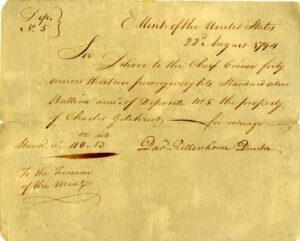 Dep.
N. 5
Mint of the United States
22d August 1794
Sir
Deliver to the Chief Coiner forty
ounces thirteen pennyweights Standard silver
Bullion amt. of Deposite No. 5 the property
of Charles Gilchrist for coinage
oz dwt
Stand. 40-13
Dav. Rittenhouse Director
To the Treasurer
of the Mint